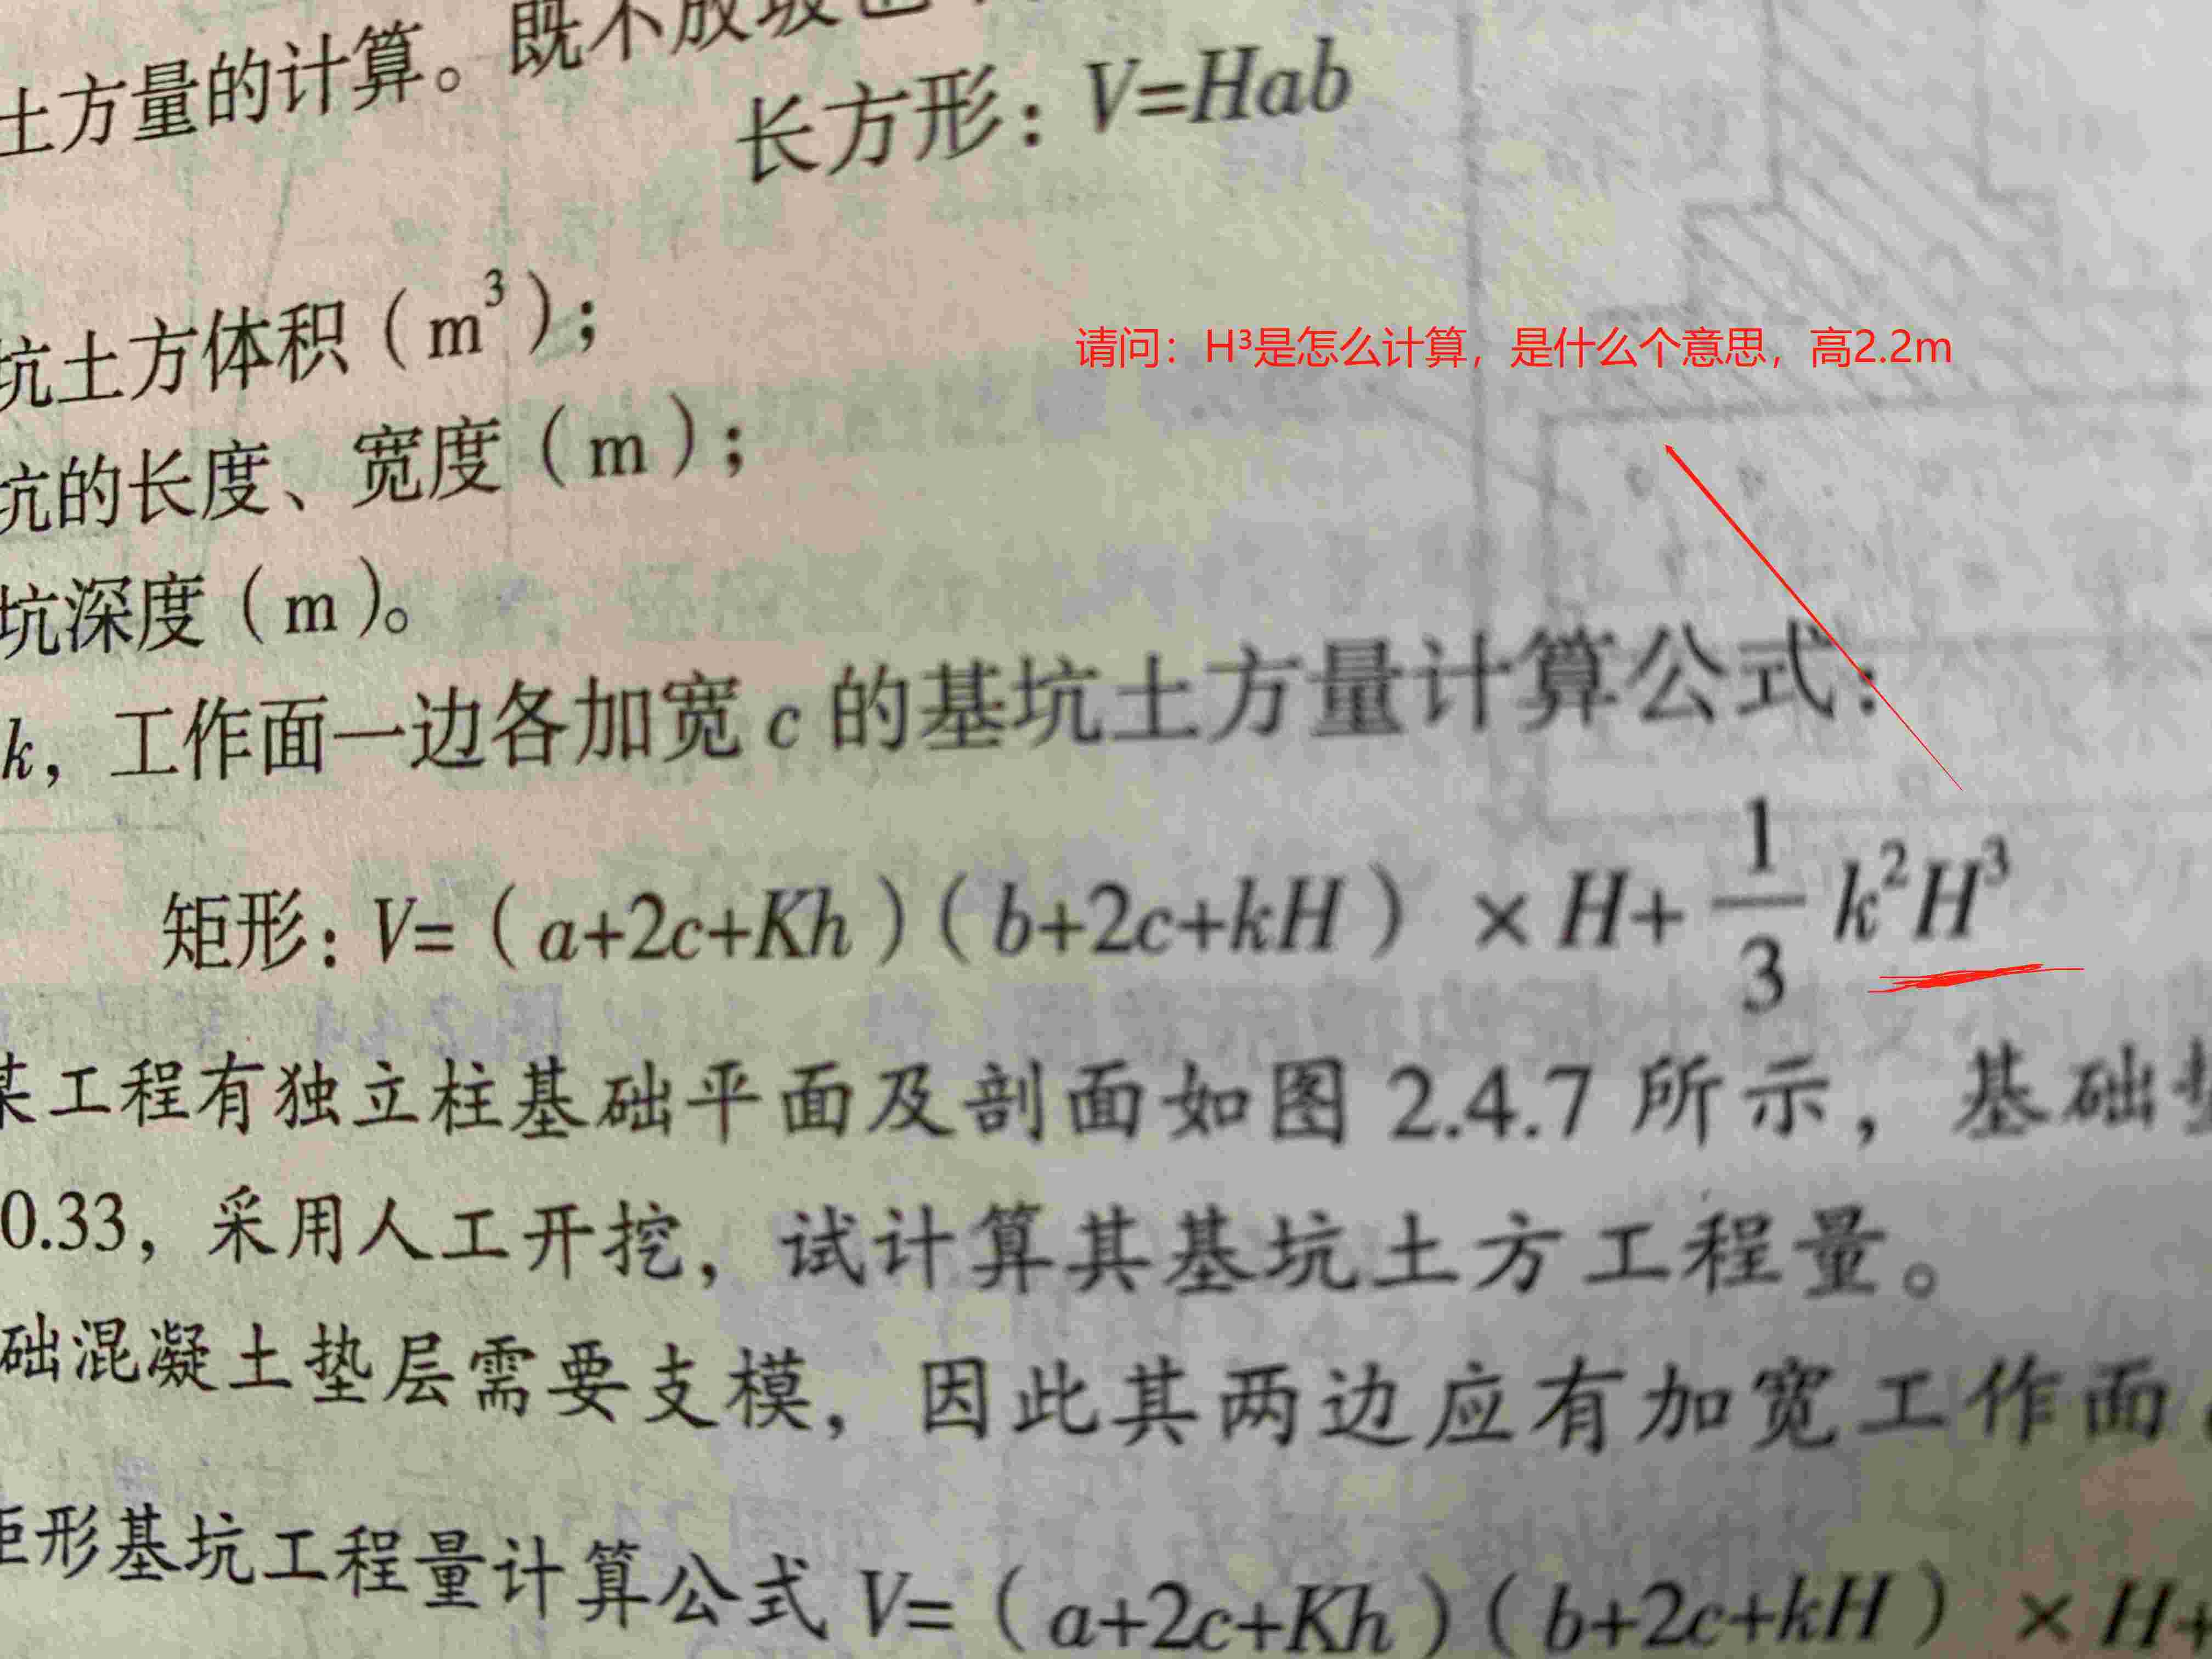 土方量的计算。既不放坡也
长方形：V=Hab
坑土方体积（m³）；
请问：H³是怎么计算，是什么个意思，高2.2m
坑的长度、宽度（m）；
坑深度（m）。
k，工作面一边各加宽 c 的基坑土方量计算公式：
矩形：V=（a+2c+Kh）（b+2c+kH）×H+1/3 k²H³
某工程有独立柱基础平面及剖面如图 2.4.7 所示，基础垫
0.33，采用人工开挖，试计算其基坑土方工程量。
础混凝土垫层需要支模，因此其两边应有加宽工作面
矩形基坑工程量计算公式 V=（a+2c+Kh）（b+2c+kH）×H+